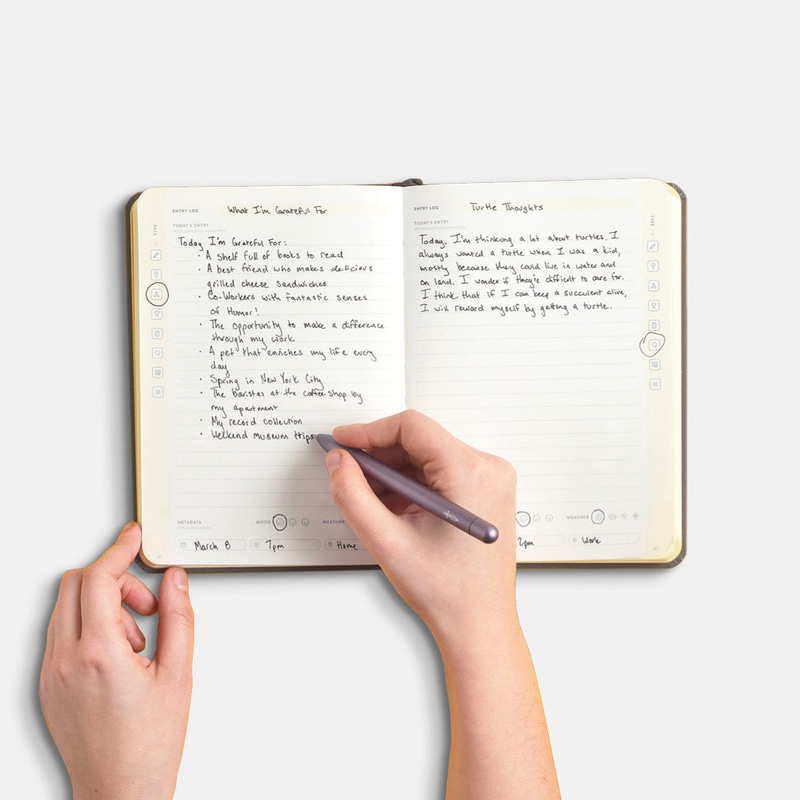 ENTRY LOG
What I'm Grateful For
TODAY'S ENTRY
Today I'm Grateful For:
· A shelf full of books to read
· A best friend who makes delicious
grilled cheese sandwiches
· Co-workers with fantastic senses
of Humor!
· The opportunity to make a difference
through my work
· A pet that enriches my life every
day
· Spring in New York City
· The baristas at the coffee shop by
my apartment
· My record collection
· Weekend museum trips
METADATA
MOOD
WEATHER
March 8
7pm
Home
TYPE
ENTRY LOG
Turtle Thoughts
TODAY'S ENTRY
Today, I'm thinking a lot about turtles. I
always wanted a turtle when I was a kid,
mostly because they could live in water and
on land. I wonder if they're difficult to care for.
I think that if I can keep a succulent alive,
I will reward myself by getting a turtle.
WEATHER
2pm
Work
TYPE